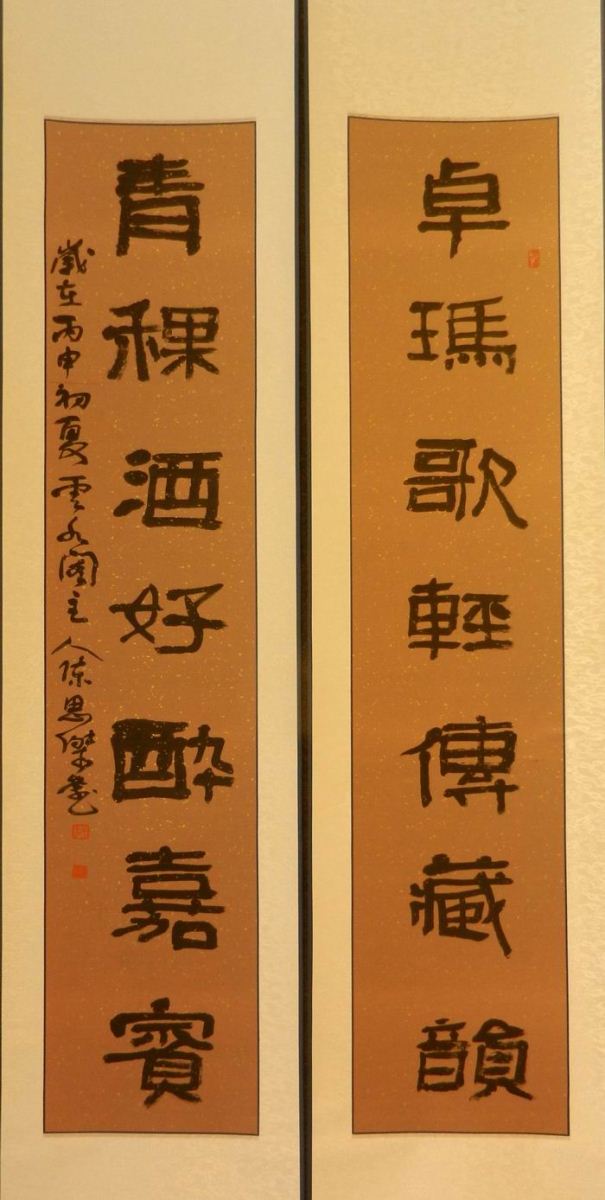 卓瑪歌輕傳藏韻
青稞酒好醉嘉賓
歲在丙申初夏雲水閣主人陳思傑書